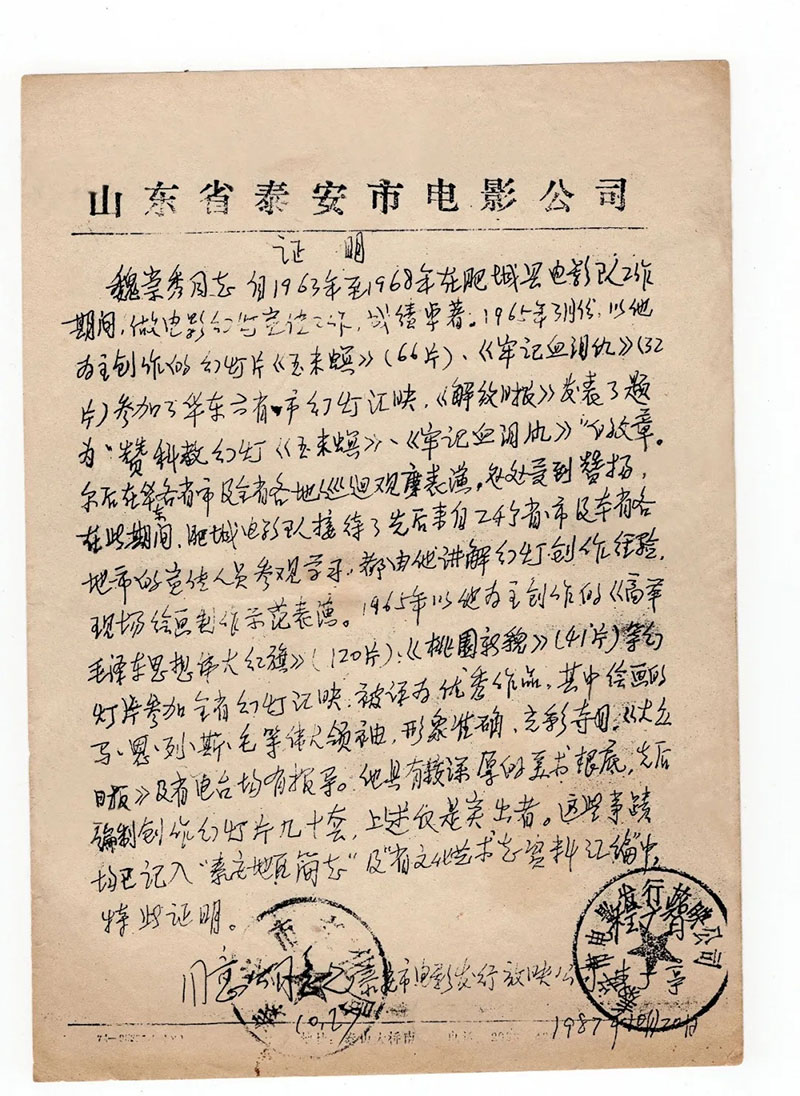 山东省泰安市电影公司
证明
魏崇秀同志自1963年至1968年在肥城县电影队工作
期间，做电影幻灯宣传工作，成绩卓著。1965年3月份，以他
为主创作的幻灯片《玉米螟》（66片）、《牢记血泪仇》（32
片）参加了华东六省、市幻灯汇映，《解放日报》发表了题
为“赞科教幻灯《玉米螟》、《牢记血泪仇》”的文章。
尔后在华东各省市及全省各地巡迴观摩表演，处处受到赞扬，
在此期间，肥城电影队接待了先后来自24个省、市及本省各
地市的宣传人员参观学习，都由他讲解幻灯创作经验，
现场绘画制作示范表演。1965年以他为主创作的《高举
毛泽东思想伟大红旗》（120片）、《桃园新貌》（41片）等幻
灯片参加全省幻灯汇映，被评为优秀作品，其中绘画的
马、恩、列、斯、毛等伟大领袖，形象准确，光彩夺目，《大众
日报》及省电台均有报导。他具有较深厚的美术根底，先后
编制创作幻灯片九十套，上述仅是突出者。这些事蹟
均已记入“泰安地区简志”及“省文化艺术志资料汇编”中，
特此证明。
泰安市电影发行放映公
10.2
1987年10月20日